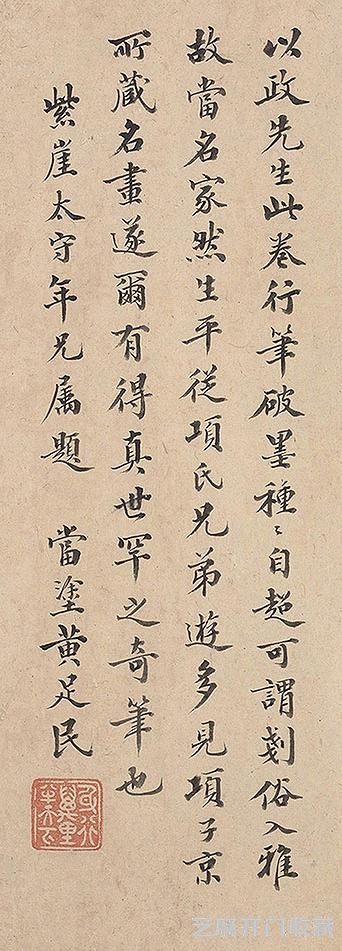 以政先生此卷行筆破墨種〻自超可謂剗俗入雅
故當名家然生平從項氏兄弟遊多見項子京
所藏名畫遂爾有得真世罕之奇筆也
紫崖太守年兄属題 當塗黄足民